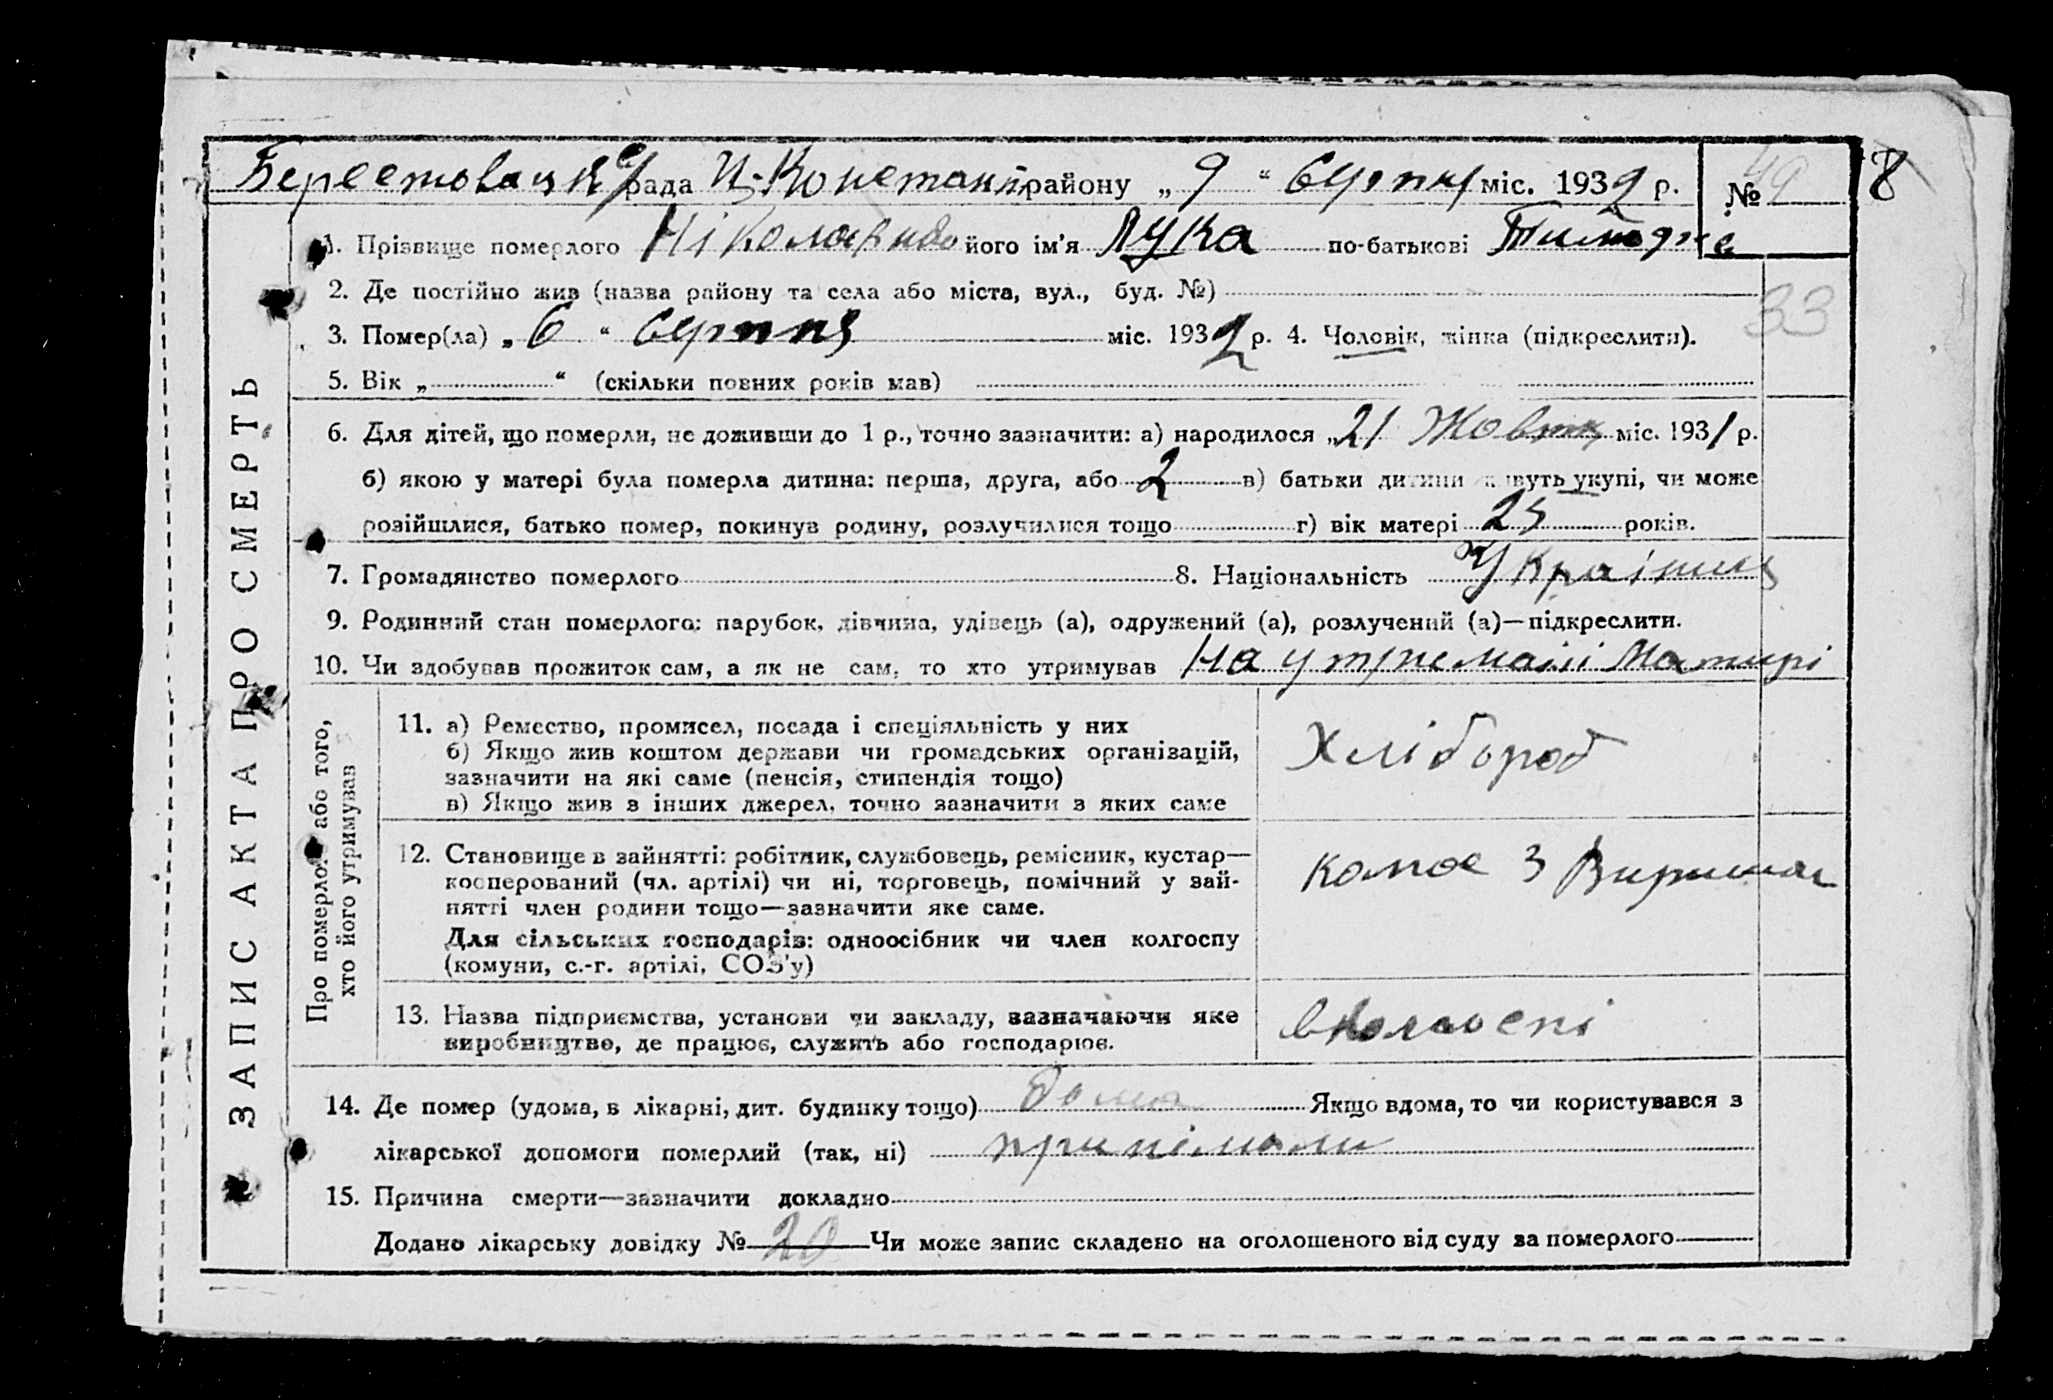 ЗАПИС АКТА ПРО СМЕРТЬ
Берестовацька с/рада Ц-Констант. району „9“ Серпня міс. 1932 р.
№ 49
18
1. Прізвище померлого його ім’я Лука по-батькові
2. Де постійно жив (назва району та села або міста, вул., буд. №)
33
3. Помер(ла) „6“ Серпня міс. 1932 р. 4. Чоловік, жінка (підкреслити).
5. Вік „ “ (скільки повних років мав)
6. Для дітей, що померли, не доживши до 1 р., точно зазначити: а) народилося „21 Жовтня міс. 1931 р.
б) якою у матері була померла дитина: перша, друга, або 2 в) батьки дитини живуть укупі, чи може
розійшлися, батько помер, покинув родину, розлучилися тощо г) вік матері 25 років.
7. Громадянство померлого 8. Національність Украінец
9. Родинний стан померлого: парубок, дівчина, удівець (а), одружений (а), розлучений (а)—підкреслити.
10. Чи здобував прожиток сам, а як не сам, то хто утримував На утрпемані Матирі
Про померлого або того, хто його утримував
11. а) Ремество, промисел, посада і спеціяльність у них
б) Якщо жив коштом держави чи громадських організацій,
зазначити на які саме (пенсія, стипендія тощо)
в) Якщо жив з інших джерел, точно зазначити з яких саме
Хлібороб
12. Становище в зайнятті: робітник, службовець, ремісник, кустар—
кооперований (чл. артілі) чи ні, торговець, помічний у зай-
нятті член родини тощо—зазначити яке саме.
Для сільських господарів: одноосібник чи член колгоспу
(комуни, с.-г. артілі, СОЗ'у)
13. Назва підприємства, установи чи закладу, зазначаючи яке
виробництво, де працює, служить або господарює.
14. Де помер (удома, в лікарні, дит. будинку тощо) дома Якщо вдома, то чи користувався з
лікарської допомоги померлий (так, ні)
15. Причина смерти—зазначити докладно
Додано лікарську довідку № 20 Чи може запис складено на оголошеного від суду за померлого